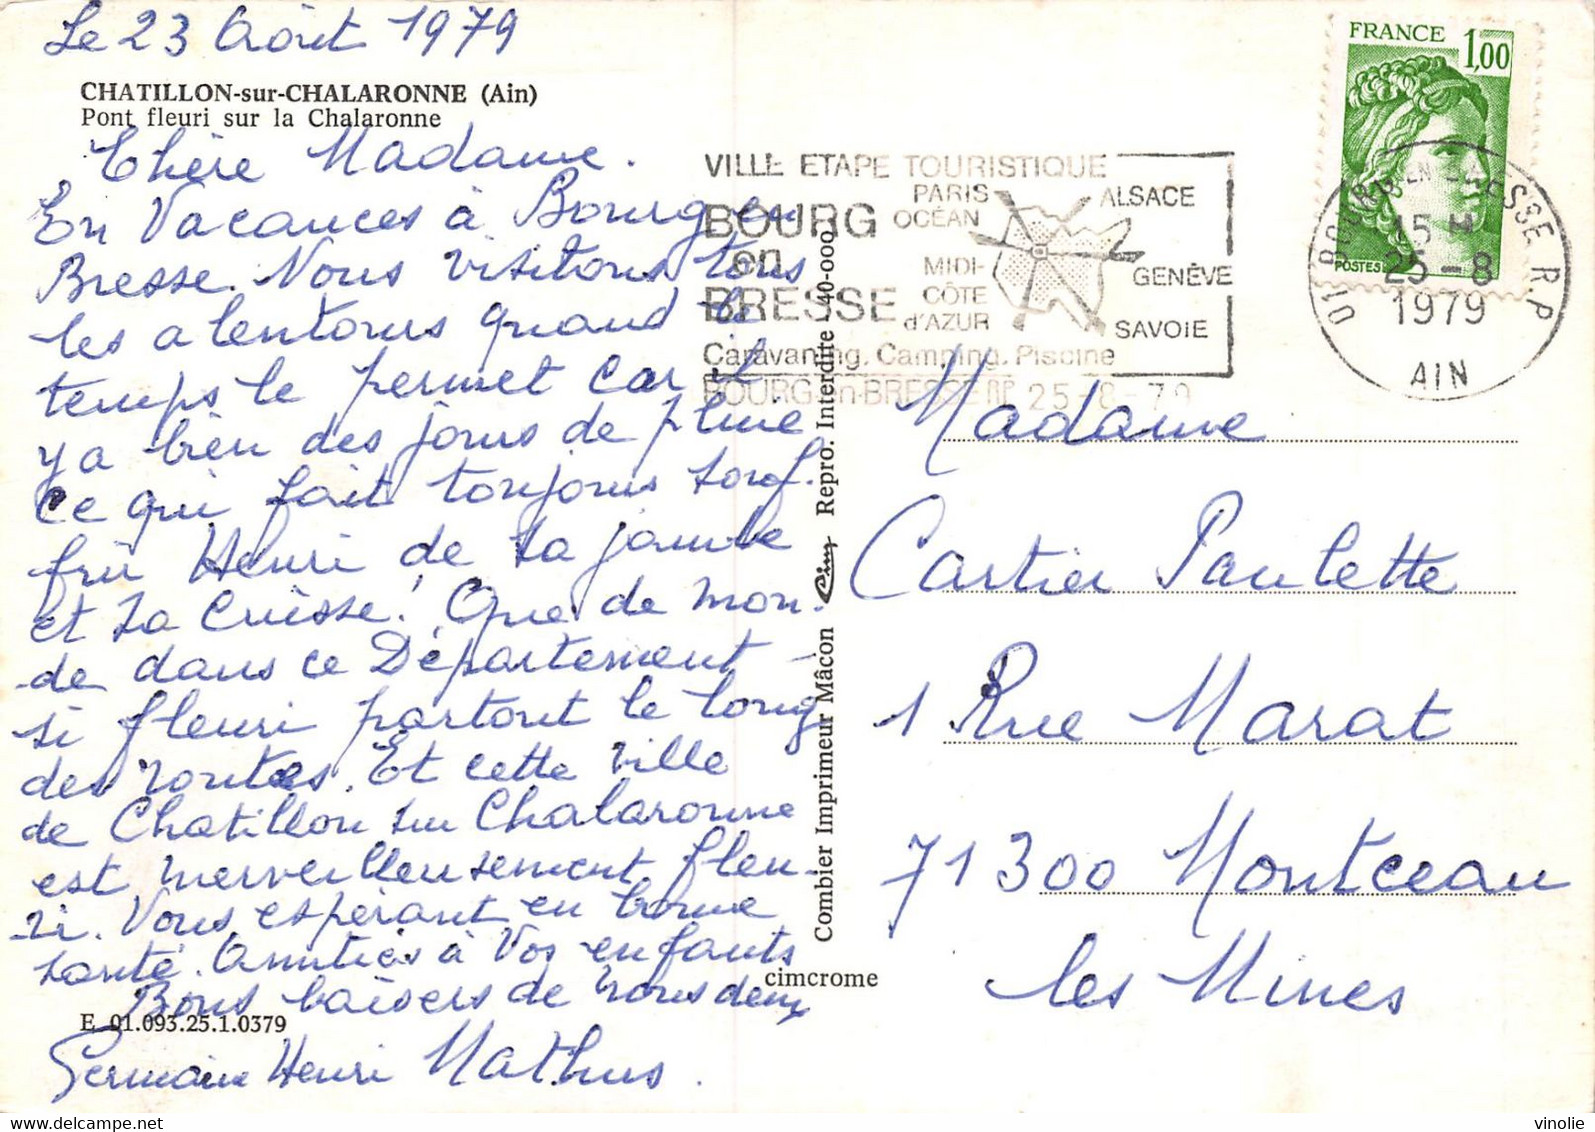 Le 23 Août 1979
CHATILLON-sur-CHALARONNE (Ain)
Pont fleuri sur la Chalaronne
Chère Madame.
En Vacances à Bourg en
Bresse. Nous visitons tous
les alentours quand le
temps le permet car il
y a bien des jours de pluie
ce qui fait toujours souf.
frir Henri de sa jambe
et sa Cuisse! Que de mon.
de dans ce Département -
si fleuri partout le long
des routes. Et cette ville
de Chatillon sur Chalaronne
est merveilleusement fleu-
ri. Vous espérant en bonne
santé. Amitiés à Vos enfants
Bons baisers de nous deux
E 01.093.25.1.0379
Germaine Henri Mathus.
Combier Imprimeur Mâcon Cim Repro. Interdite 40-000
cimcrome
VILLE ETAPE TOURISTIQUE
BOURG
en
BRESSE
PARIS
OCÉAN
MIDI-
CÔTE
d'AZUR
ALSACE
GENÈVE
SAVOIE
Caravaning. Camping. Piscine
BOURG-en-BRESSE RP 25-8-79
FRANCE 1,00
POSTES
01 BOURG EN BRESSE R.P
15 H
25-8
1979
AIN
Madame
Cartier Paulette
1 Rue Marat
71300 Montceau
les Mines
vinolie